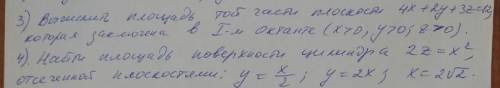 3) Вычислить площадь той части плоскости 4x+2y+3z=12,
которая заключена в I-м октанте (x>0, y>0, z>0).
4). Найти площадь поверхности цилиндра 2z=x²,
отсеченной плоскостями: y=x/2; y=2x; x=2√2.